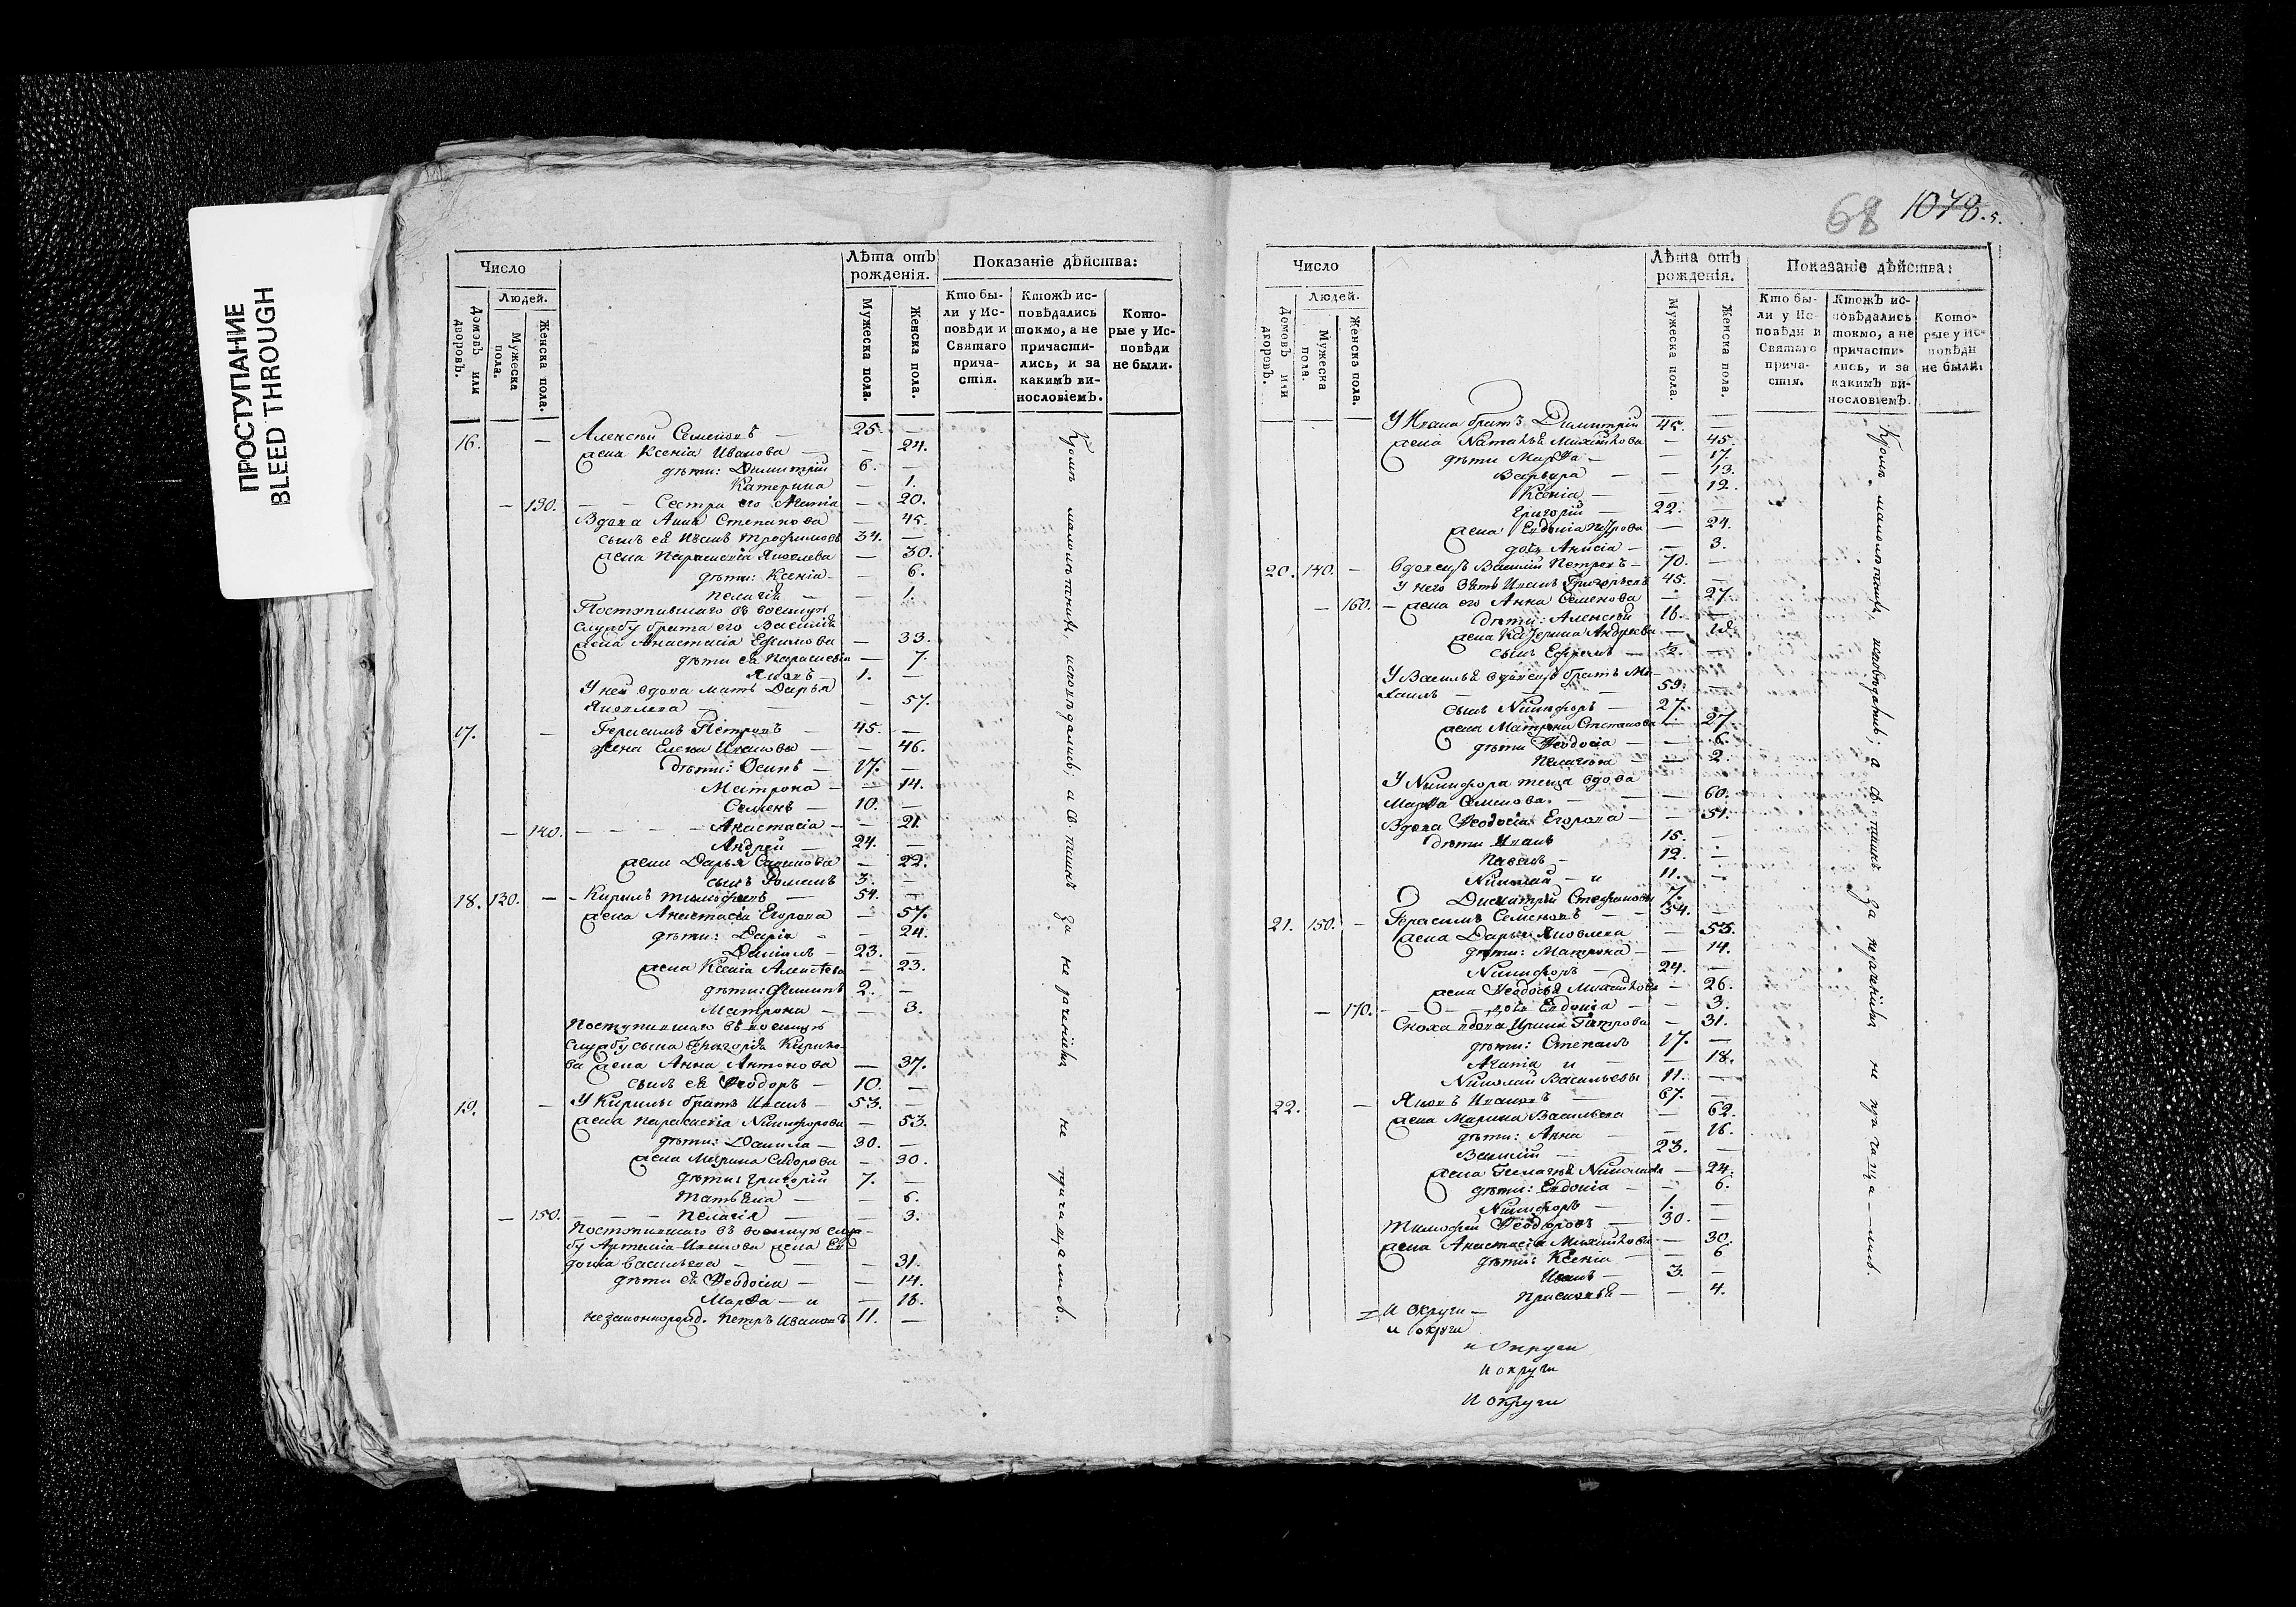 ПРОСТУПАНИЕ
BLEED THROUGH
Число
Людей.
Домовъ или дворовъ.
Мужеска пола.
Женска пола.
Лѣта отъ рожденія.
Мужеска пола.
Женска пола.
Показаніе дѣйства:
Кто бы-
ли у Ис-
повѣди и
Святаго
прича-
стія.
Ктожъ ис-
повѣдались
токмо, а не
причасти-
лись, и за
какимъ ви-
нословіемъ.
Кото-
рые у Ис-
повѣди
не были.
16. — Алексѣй Семеновъ — 25. —
жена Ксенія Иванова — — 24.
дѣти: Димитрій 6. —
Катерина — 1.
— 130. — — Сестра его Агапія — 20.
Вдова Анна Степанова — 45.
сынъ ея Иванъ Трофимовъ 34. —
жена Параскевія Яковлева — 30.
дѣти: Ксенія — — 6.
Пелагія — — 1.
Поступившаго въ военную
службу брата его Василія
жена Анастасія Ефимова — 33.
дѣти ея Параскевія — 7.
Яковъ — 1. —
У ней вдова мать Дарья
Яковлева — — — 57.
17. — Герасимъ Петровъ — 45. —
жена Елена Иванова — — 46.
дѣти: Осипъ — 17. —
Матрона — — 14.
Семенъ — 10. —
— 140. — — — — Анастасія — — 21.
Андрей — 24. —
жена Дарья — 22.
сынъ Романъ 3. —
18. 120. — — Кирилъ Тимофеевъ — 54. —
жена Анастасія Егорова — 57.
дѣти: Дарія — — 24.
Даніилъ — 23. —
жена Ксенія Алексѣева — 23.
дѣти: Филипъ 2. —
Матрона — — 3.
Поступившаго въ военную
службу сына Григорія Кирило-
ва жена Анна Антонова — 37.
сынъ ея Ѳеодоръ — 10. —
19. — У Кирилы братъ Иванъ — 53. —
жена Параскевія Никифорова — 53.
дѣти: Данила — 30. —
жена Марина Сидорова — 30.
дѣти: Григорій 7. —
Татьяна — — 6.
— 150. — — — Пелагія — — 3.
Поступившаго въ военную служ-
бу Артемія Иванова жена Ев-
докія Васильева — — — 31.
дѣти ея Ѳеодосія — — 14.
Марѳа — и — 16.
незаконнорожд. Петръ Ивановъ 11. —
Кромѣ малолѣтнихъ исповѣдались; а Св. таинъ за не раченіемъ не причащались.
68 1078. 5.
Число
Людей.
Домовъ или дворовъ.
Мужеска пола.
Женска пола.
Лѣта отъ рожденія.
Мужеска пола.
Женска пола.
Показаніе дѣйства:
Кто бы-
ли у Ис-
повѣди и
Святаго
прича-
стія.
Ктожъ ис-
повѣдались
токмо, а не
причасти-
лись, и за
какимъ ви-
нословіемъ.
Кото-
рые у Ис-
повѣди
не были.
У Ивана братъ Димитрій 45. —
жена Наталья Михайлова — 45.
дѣти Марѳа — — 17.
Варвара — — 13.
Ксенія — — 12.
Григорій — 22. —
жена Евдокія Петрова — 24.
дочь Анисія — — 3.
20. 140. — Вдовецъ Василій Петровъ — 70. —
У него зять Иванъ Григорьевъ 45. —
— 160. — жена его Анна Семенова — 27.
дѣти: Алексѣй 16. —
жена Катерина Андреева —
сынъ Ефремъ — ½. —
У Василья вдовецъ братъ Ми-
хаилъ — — — 59. —
сынъ Никифоръ — 27. —
жена Матрона Степанова — 27.
дѣти Ѳеодосія — — 6.
Пелагея — — 2.
У Никифора теща вдова
Марѳа Семенова. — — — 60.
Вдова Ѳеодосія Егорова — — 51.
дѣти Иванъ 15. —
Павелъ — 12. —
Николай — и 11. —
Димитрій Стефановы 7. —
21. 150. — Герасимъ Семеновъ — — 54. —
жена Дарья Яковлева — 55.
дѣти: Матрона — — 14.
Никифоръ — 24. —
жена Ѳеодосья Михайлова — 26.
— 170. — — — дочь Евдокія — — 3.
Сноха вдова Ирина Петрова — 31.
дѣти: Степанъ 17. —
Агапія и — 18.
Николай Васильевы 11. —
22. — Яковъ Ивановъ — 67. —
жена Марина Васильева — 62.
дѣти: Анна — — 16.
Василій — 23. —
жена Пелагья Николаева — 24.
дѣти: Евдокія — — 6.
Никифоръ — 1. —
Тимофей Ѳеодоровъ — 30. —
жена Анастасія Михайлова — 30.
дѣти: Ксенія — — 6
Иванъ — 3. —
Прасковья — — 4.
Кромѣ малолѣтнихъ, исповѣдались; а Св. таинъ за нераченіемъ не причаща—лись.
и округи —
и округи
и округи
и округи
и округи